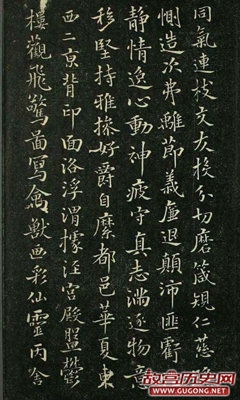 同氣連枝交友投分切磨箴規仁慈
惻造次弗離節義廉退顛沛匪虧
靜情逸心動神疲守真志滿逐物意
移堅持雅操好爵自縻都邑華夏東
西二京背邙面洛浮渭據涇宮殿盤鬱
樓觀飛驚圖寫禽獸畫彩仙靈丙舍
故宫历史网